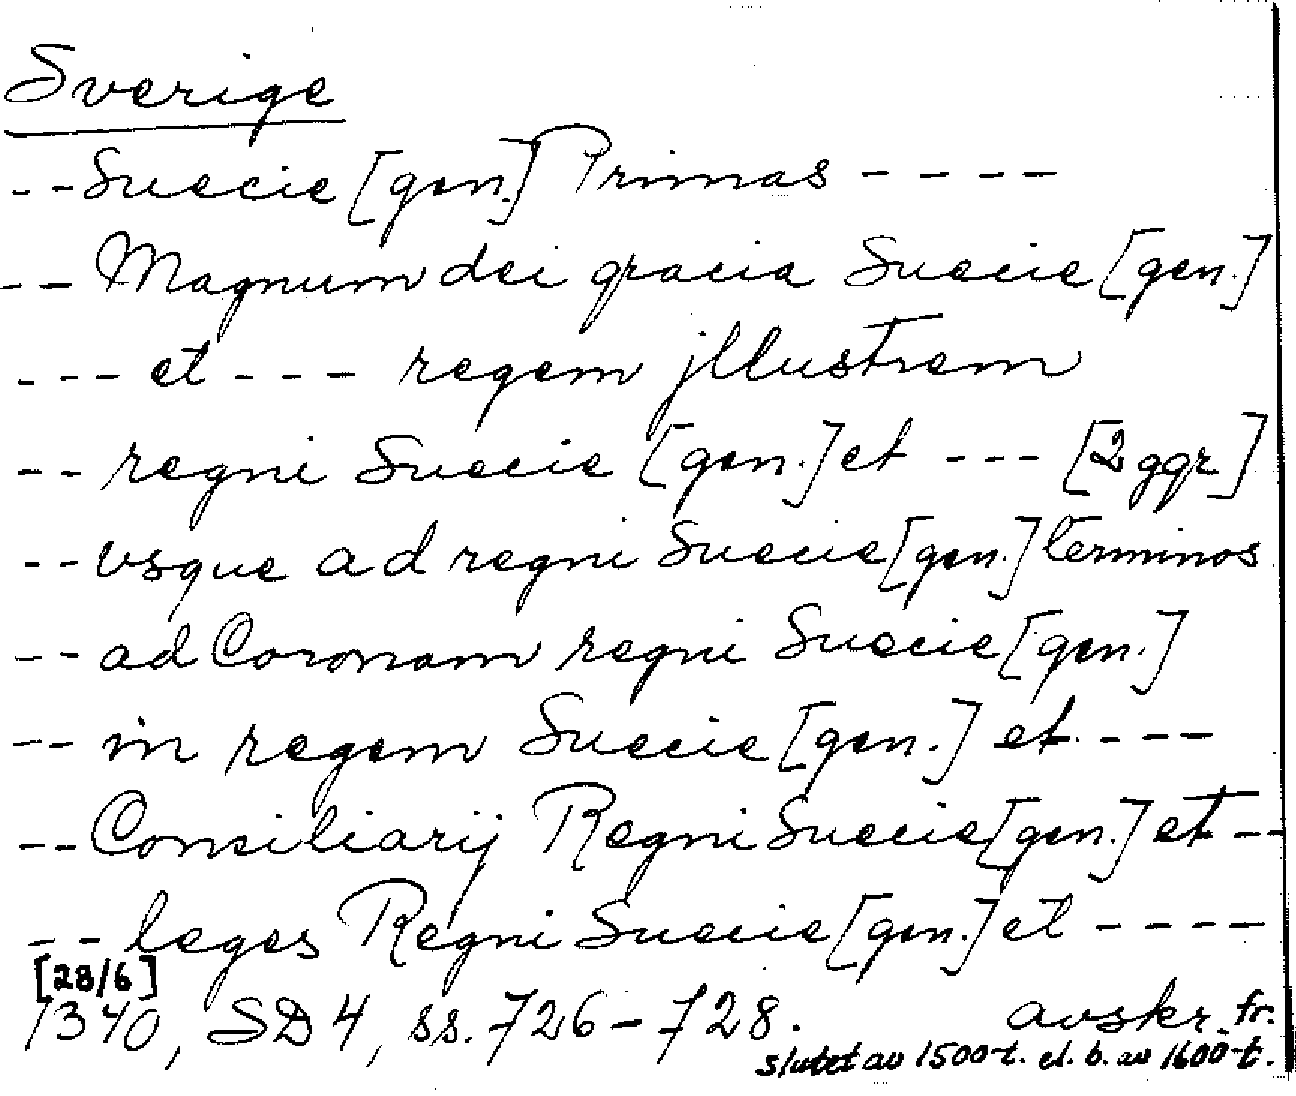 Sverige
-- Suecie [gen.] Primas ----
-- Magnum dei gracia Suecie [gen.]
--- et --- regem jllustrem
-- regni Suecie [gen.] et --- [2 ggr]
-- vsque ad regni Suecie [gen.] terminos
-- ad Coronam regni Suecie [gen.]
-- in regem Suecie [gen.] et ----
-- Consiliarij Regni Suecie [gen.] et --
-- leges Regni Suecie [gen.] et ----
[28/6]
1340, SD 4, ss. 726-728. avskr. fr.
slutet av 1500-t. el. b. av 1600-t.